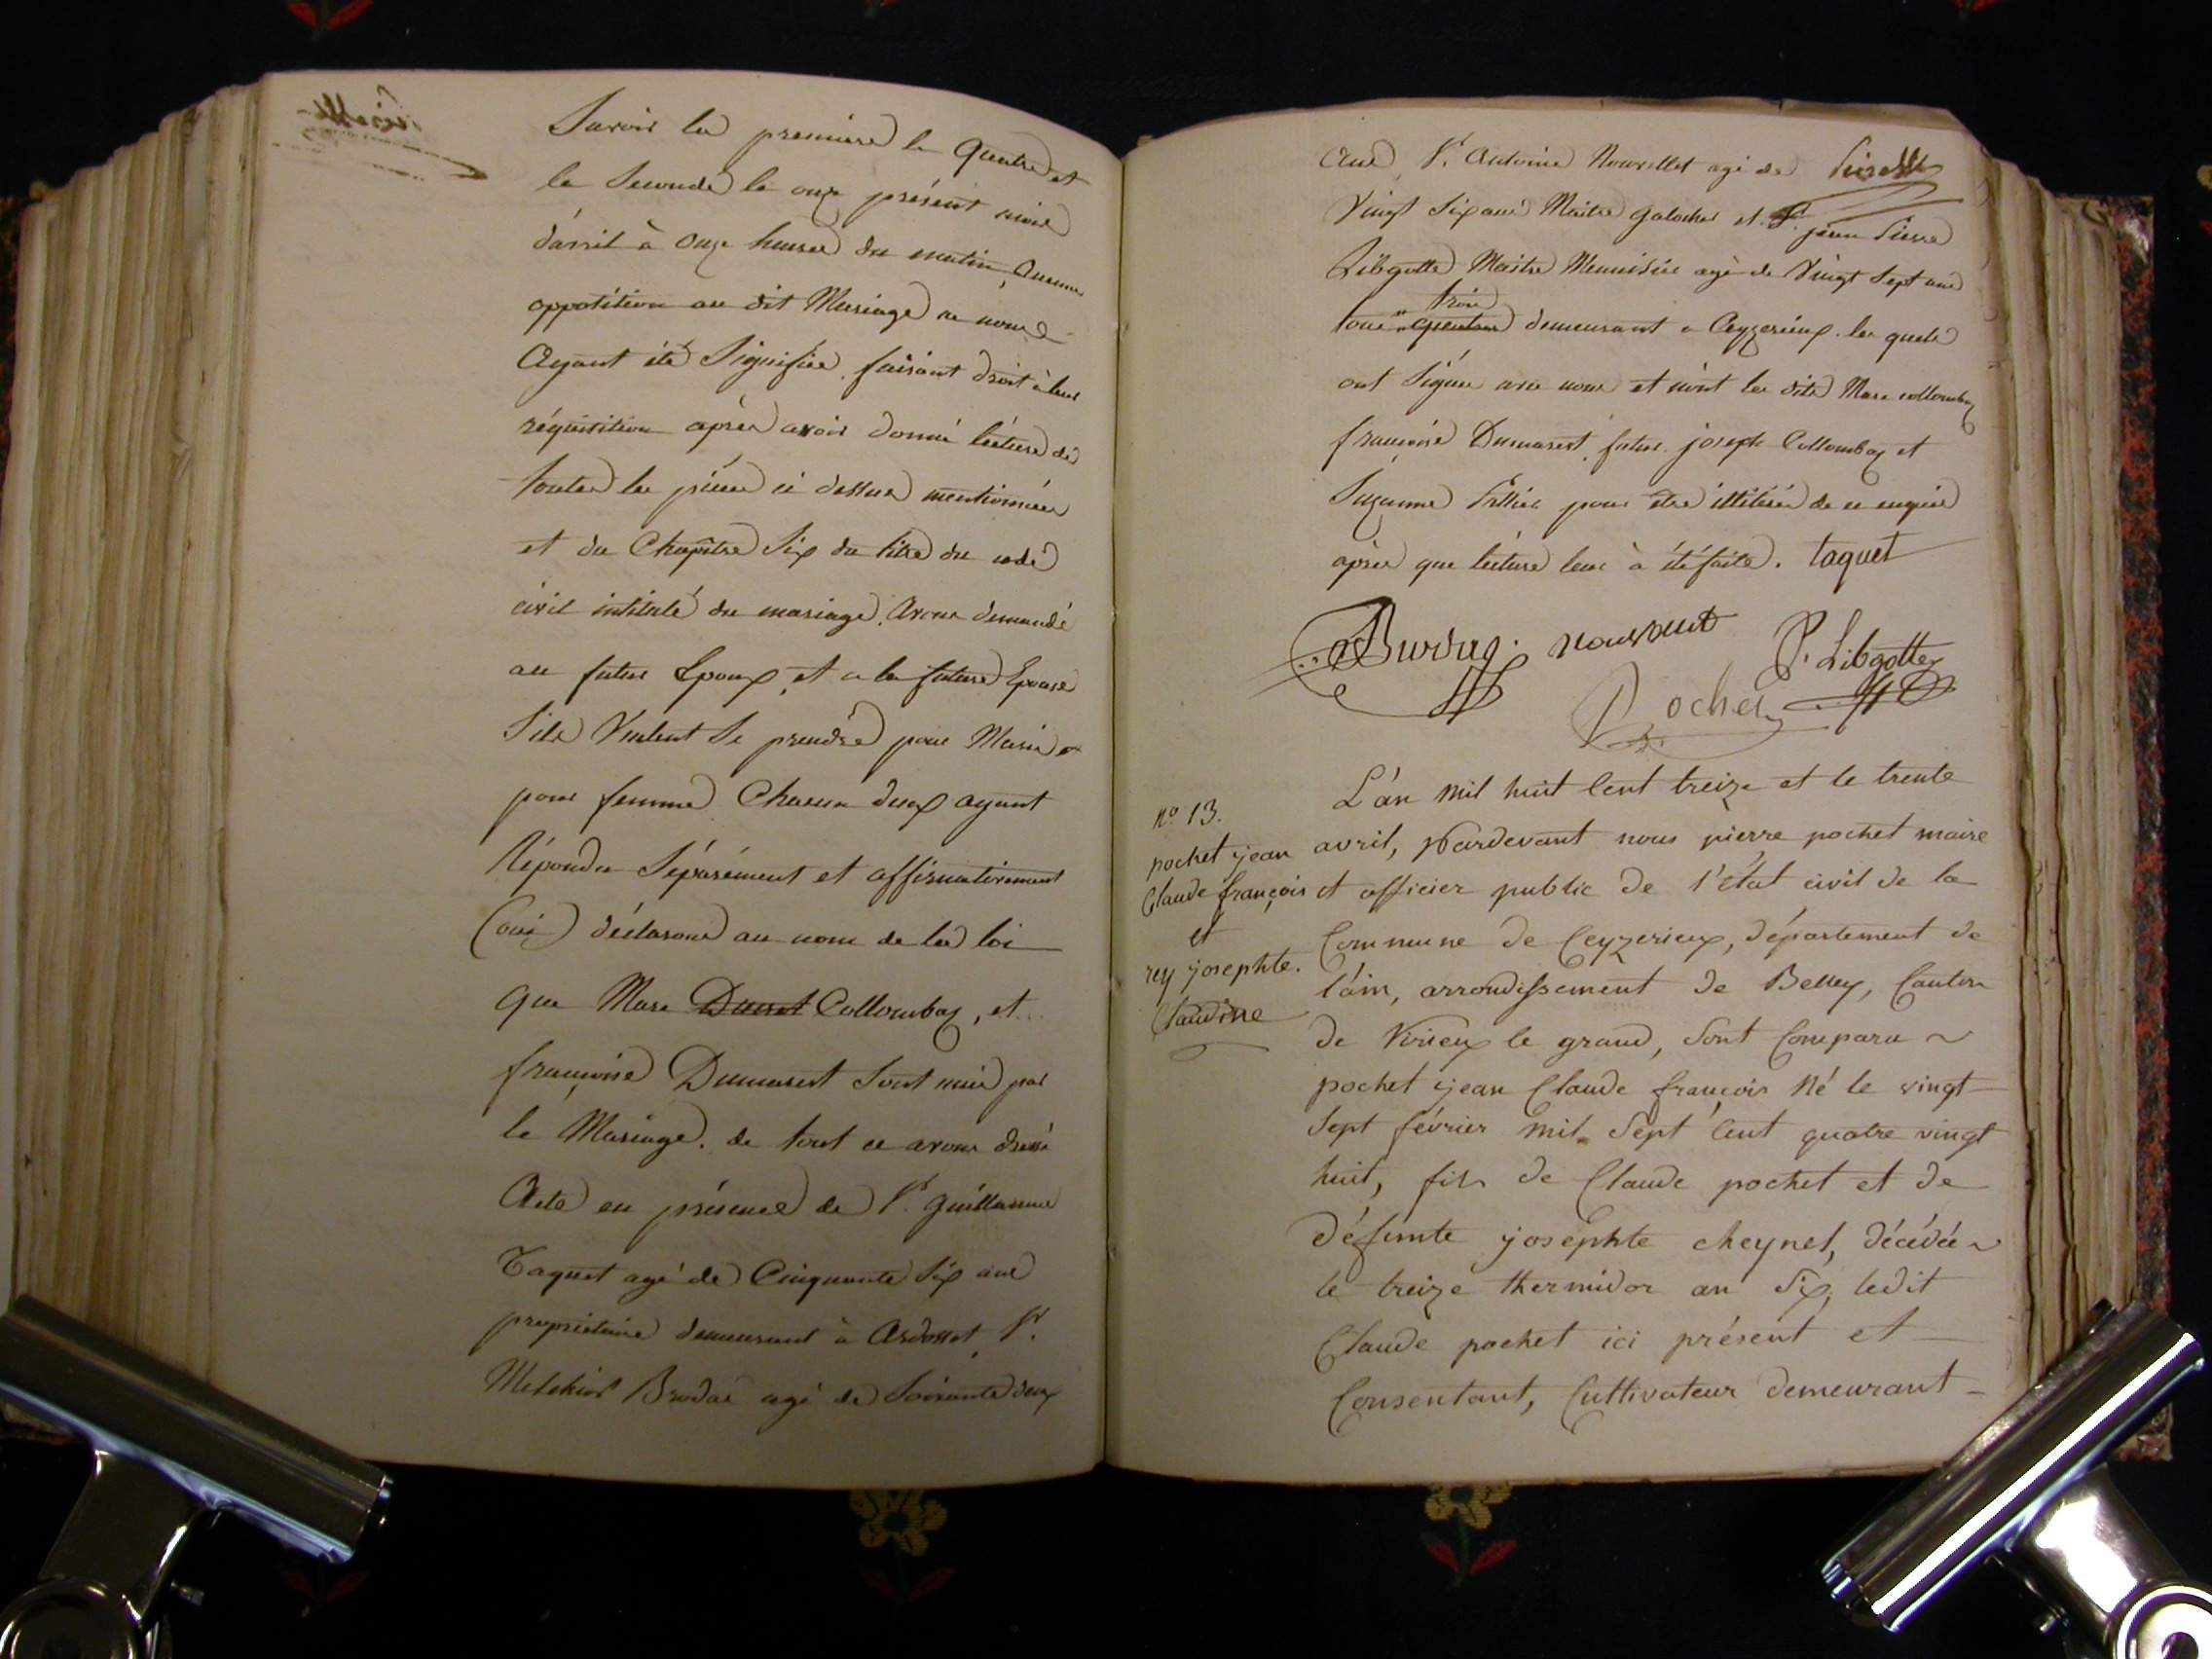 Savoir la premiere le quatre et
la Seconde le onze présent mois
d'avril à onze heures du matin, Aucune
oppotition au dit Mariage ne nous
Ayant été Signifiée, faisant droit à leur
réquisition après avoir donné lecture de
toutes les pièces ci dessus mentionnées
et du Chapitre Six du titre du code
civil intitulé du mariage, Avons demandé
au futur Epoux et a la future Epouse
S'ils Veulent Se prendre pour Mari et
pour femme Chacun deux ayant
Répondu Séparément et affirmativement
(oui) déclarons au nom de la loi
que Marc Collombay, et
françoise Dumarest Sont unis par
le Mariage. de tout ce avons dressé
Acte en présence de Sr. guillaume
Taquet agé de Cinquante Six ans
propriétaire demeurant à Ardosset, Sr.
Melchior agé de Soixante deux
ans, Sr. Antoine Nourellet agé de
Vingt Six ans Maitre galocher et Sr. jean Pierre
Libgotte Maitre Menuisier agé de Vingt Sept ans
trois
tous demeurant a Ceyzerieux. les quels
ont Signés avec nous et non les dits Marc collombay
françoise Dumarest, futur. joseph Collombay et
Suzanne pour être illitérés de ce enquis
après que lecture leur à été faite. taquet
P. Libgotte
Pochet
L'an mil huit Cent treize et le trente
nº 13.
pochet jean
Claude françois
et
rey josephte.
Claudine
avril, pardevant nous pierre pochet maire
et officier public de l'état civil de la
Commune de Ceyzerieux, département de
l'ain, arrondissement de Belley, Canton
de Virieux le grand, Sont Comparu
pochet jean Claude françois Né le vingt
Sept février mil Sept Cent quatre vingt
huit, fils de Claude pochet et de
défunte josephte cheynel, décédée
le treize thermidor an Six, ledit
Claude pochet ici présent et
Consentant, Cultivateur demeurant